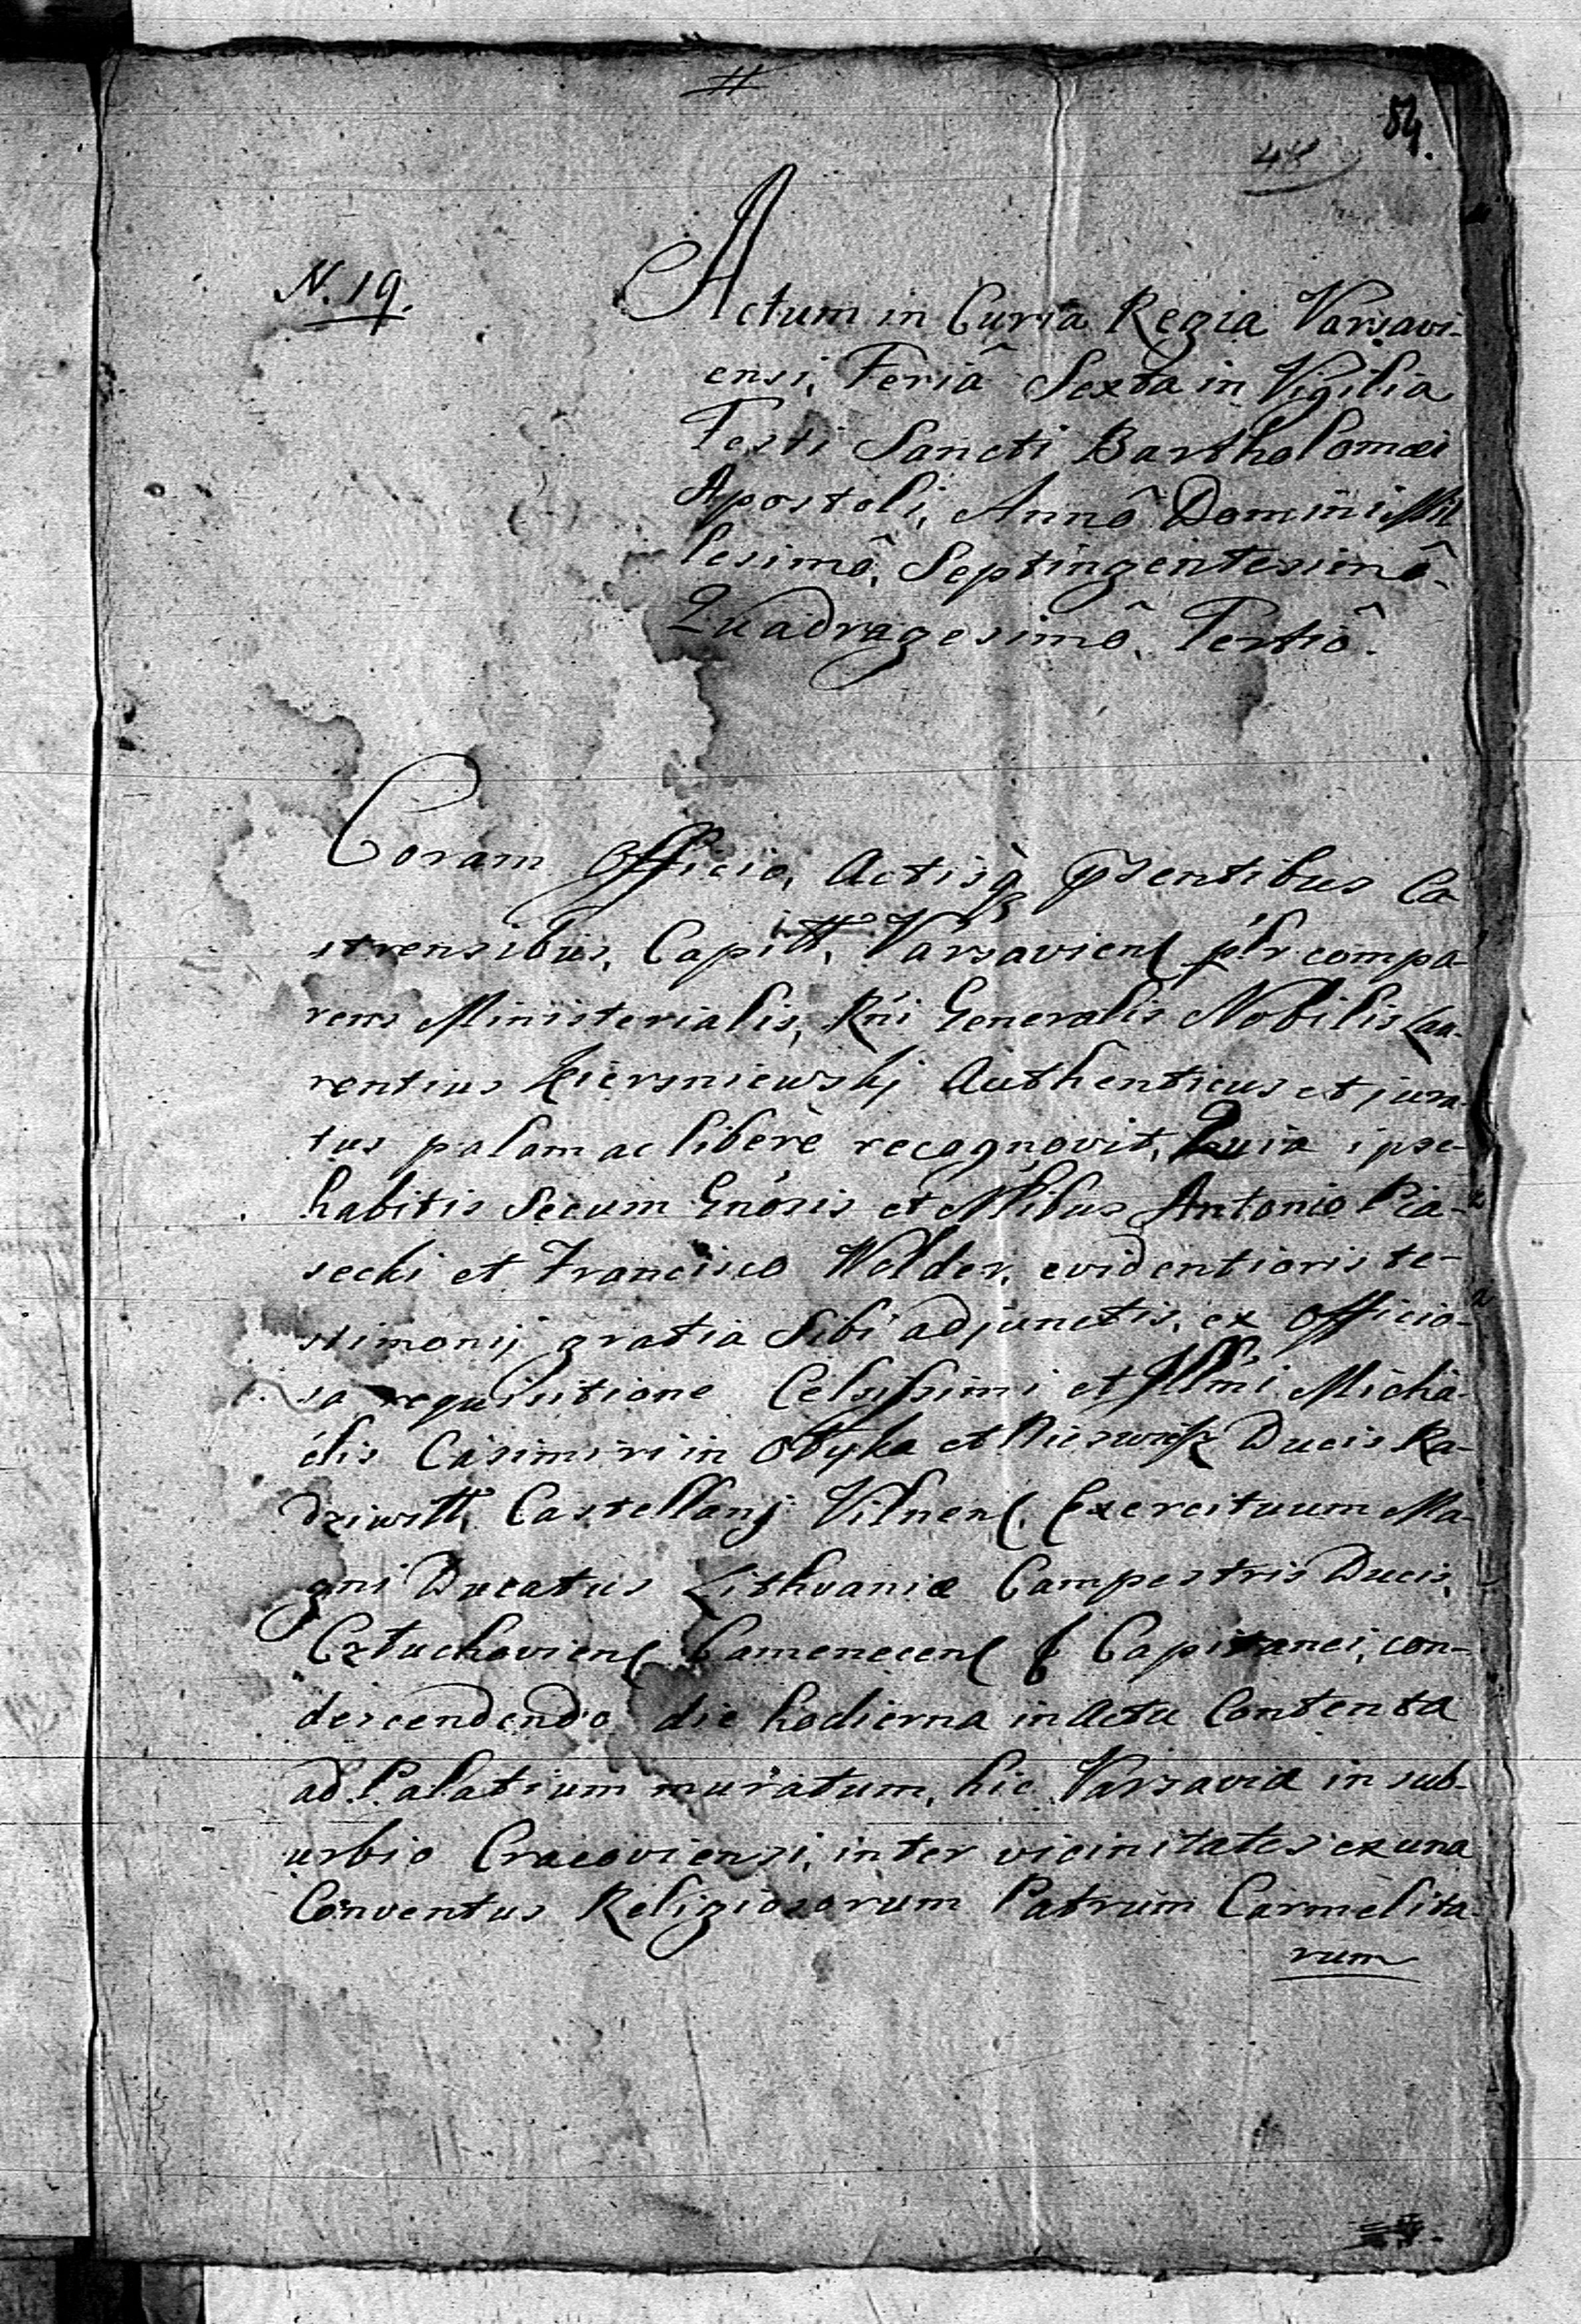 84.
44
N. 19.
Actum in Curia Regia Varsavi-
ensi, Feriâ Sexta in Vigilia
Festi Sancti Bartholomæi
Apostoli, Annô Domini Mil
lesimô, Septingentesimô
Quadragesimô, Tertiô.
Coram Officio, Actisq̀ꝫ pſentibus Ca
strensibus, Capitt, Varsavienſ pſr compa-
rens Ministerialis, Rńi Generalis Nobilis Lau-
rentius Kiersniewskj Authenticus et jura-
tus palam ac liberè recognovit, Quia ipse
habitis Secum Gńosis et Nlibus Antonio Pia-
secki et Francisco Wolder, evidentioris te-
stimonij gratia Sibi adjunctis, ex Officio-
sa requisitione Celsissimi et Illmi Micha-
elis Casimiri in Ołyka et Nieswiesz Ducis Ra-
dziwiłł, Castellanj Vilnenſ, Exercituum Ma-
gni Ducatus Lithvaniæ Campestris Ducis,
Człuchovienſ Camenecenſ Capitanei, con-
descendendo die hodierna in Actu Contenta
ad Palatium muratum, hic Varsaviæ in sub-
urbio Cracoviensi, inter vicinitates ex una
Conventus Religiosorum Patrum Carmelita-
rum